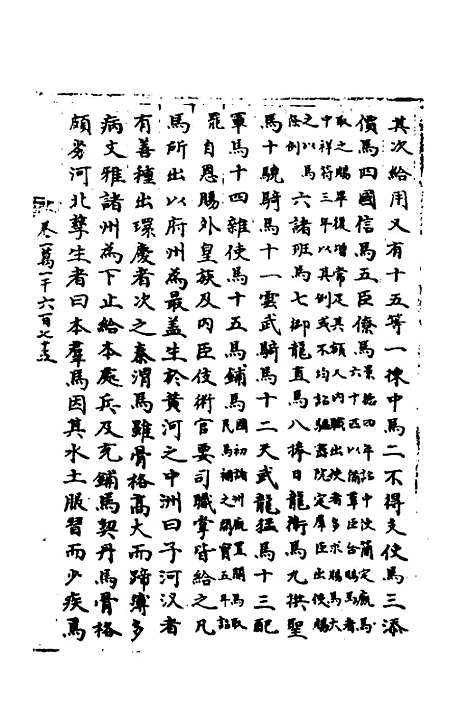 其次給用又有十五等一揀中馬二不得支使馬三添
價馬四國信馬五臣僚馬景德四年詔中使簡定羸馬六十匹以備羣臣合賜馬者
取之賜畢復增常足其額又內職出使者多求賜馬大中祥符三年以其例或不均詔驅院定羣臣出使賜
之以馬條例六諸班馬七御龍直馬八捧日龍衛馬九拱聖
馬十驍騎馬十一雲武騎馬十二天武龍猛馬十三配
軍馬十四雜使馬十五馬鋪馬國初詔諸州廐置闕馬取民馬補之開寶五年詔
罷自恩賜外皇族及內臣伎術官要司職掌皆給之凡
馬所出以府州為最蓋生於黃河之中洲曰子河汊者
有善種出環慶者次之秦渭馬雖骨格高大而蹄薄多
病文雅諸州為下止給本處兵及充鋪馬契丹馬骨格
頗劣河北孳生者曰本羣馬因其水土服習而少疾焉
卷一萬一千六百七十五